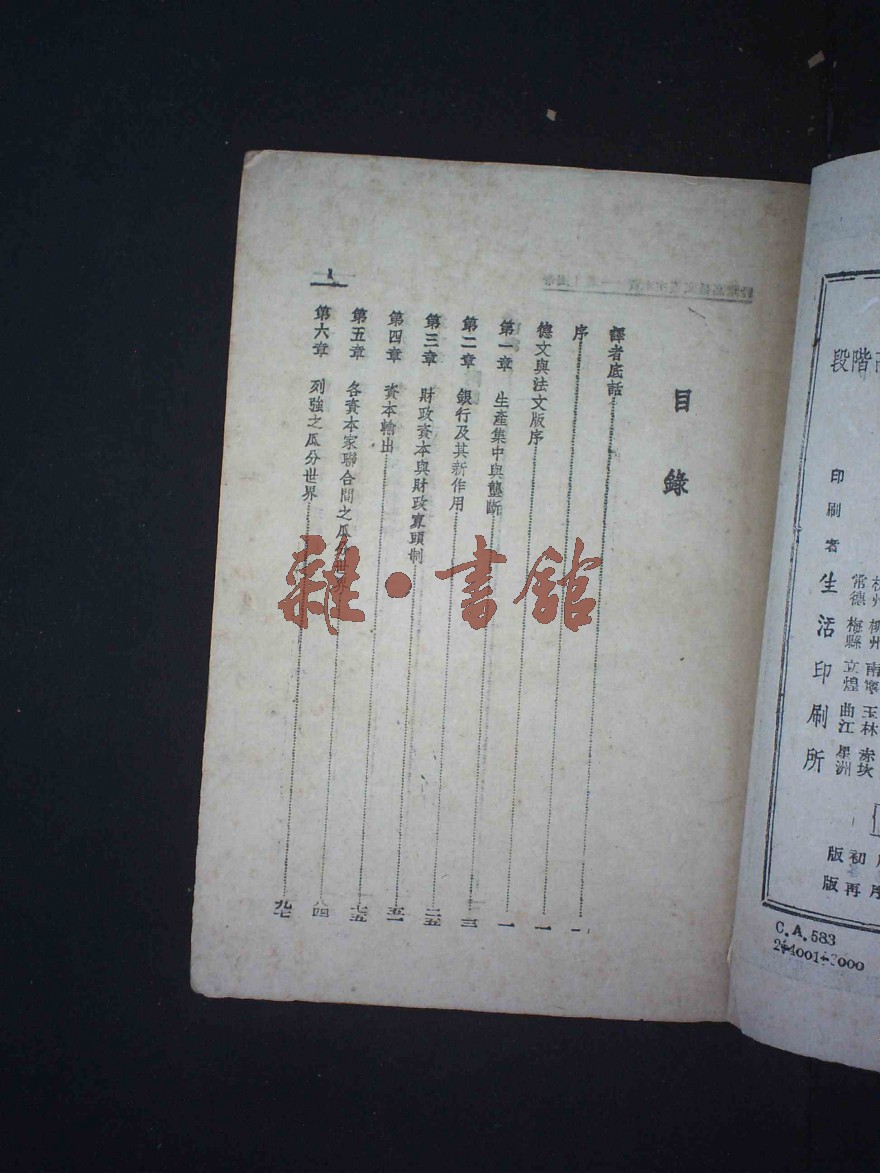 段階
常德 梅縣 立煌 曲江 星洲
印刷者 生活印刷所
版初
版再
C.A.583
目錄
譯者底話……一
序……一
德文與法文版序……一
第一章 生產集中與壟斷……三
第二章 銀行及其新作用……二五
第三章 財政資本與財政寡頭制……五一
第四章 資本輸出……七五
第五章 各資本家聯合間之瓜分世界……八四
第六章 列強之瓜分世界……九七
雜·書館